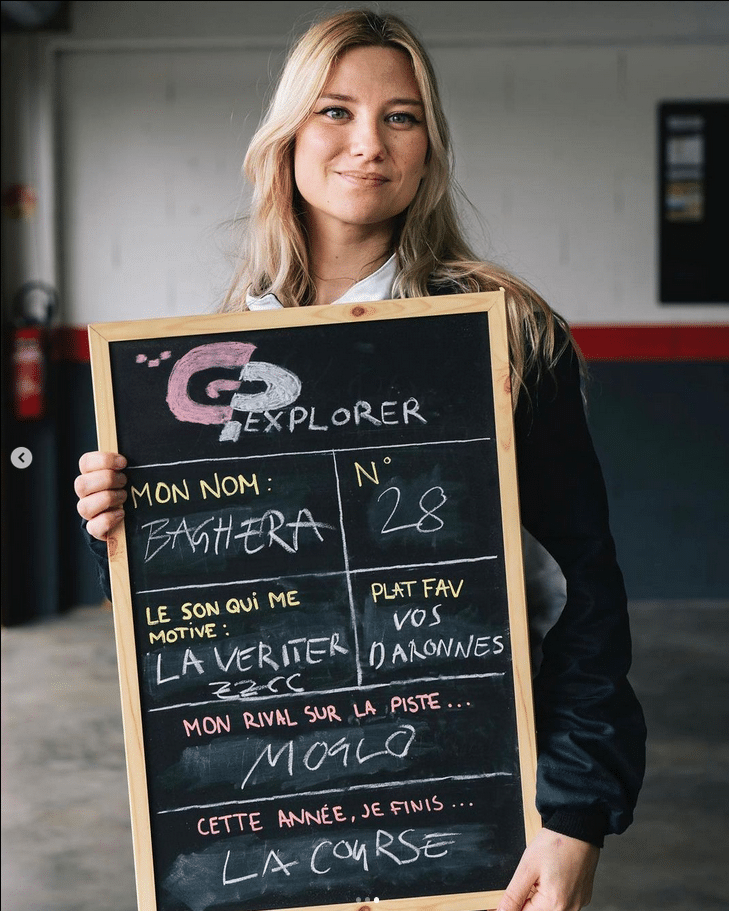 GP
EXPLORER
MON NOM :
BAGHERA
N°
28
LE SON QUI ME
MOTIVE :
LA VERITER
ZZCC
PLAT FAV
VOS
DARONNES
MON RIVAL SUR LA PISTE...
MOGLO
CETTE ANNÉE, JE FINIS ...
LA COURSE